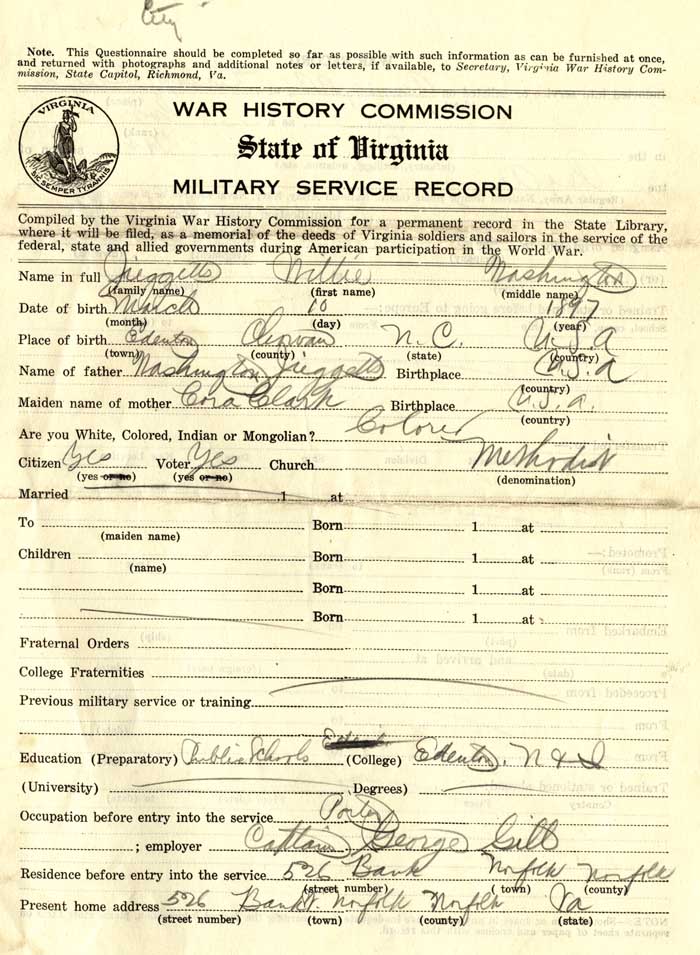 City
Note. This Questionnaire should be completed so far as possible with such information as can be furnished at once,
and returned with photographs and additional notes or letters, if available, to Secretary, Virginia War History Com-
mission, State Capitol, Richmond, Va.
VIRGINIA
SIC SEMPER TYRANNIS
WAR HISTORY COMMISSION
State of Virginia
MILITARY SERVICE RECORD
Compiled by the Virginia War History Commission for a permanent record in the State Library,
where it will be filed, as a memorial of the deeds of Virginia soldiers and sailors in the service of the
federal, state and allied governments during American participation in the World War.
Name in full Jiggetts Willie Washington
(family name) (first name) (middle name)
Date of birth March 10 1897
(month) (day) (year)
Place of birth Edenton Chowan N.C. U.S.A
(town) (county) (state) (country)
Name of father Washington Jiggetts Birthplace U.S.A
(country)
Maiden name of mother Cora Clark Birthplace U.S.A.
(country)
Are you White, Colored, Indian or Mongolian? Colored
Citizen Yes Voter Yes Church Methodist
(yes or no) (yes or no) (denomination)
Married 1 at
To Born 1 at
(maiden name)
Children Born 1 at
(name)
Born 1 at
Born 1 at
Fraternal Orders
College Fraternities
Previous military service or training
Education (Preparatory) Public Schools (College) Edenton, N & I
(University) Degrees)
Occupation before entry into the service Porter
; employer Captain George Gill
Residence before entry into the service 526 Bank Norfolk Norfolk
(street number) (town) (county)
Present home address 526 Bank Norfolk Norfolk Va
(street number) (town) (county) (state)